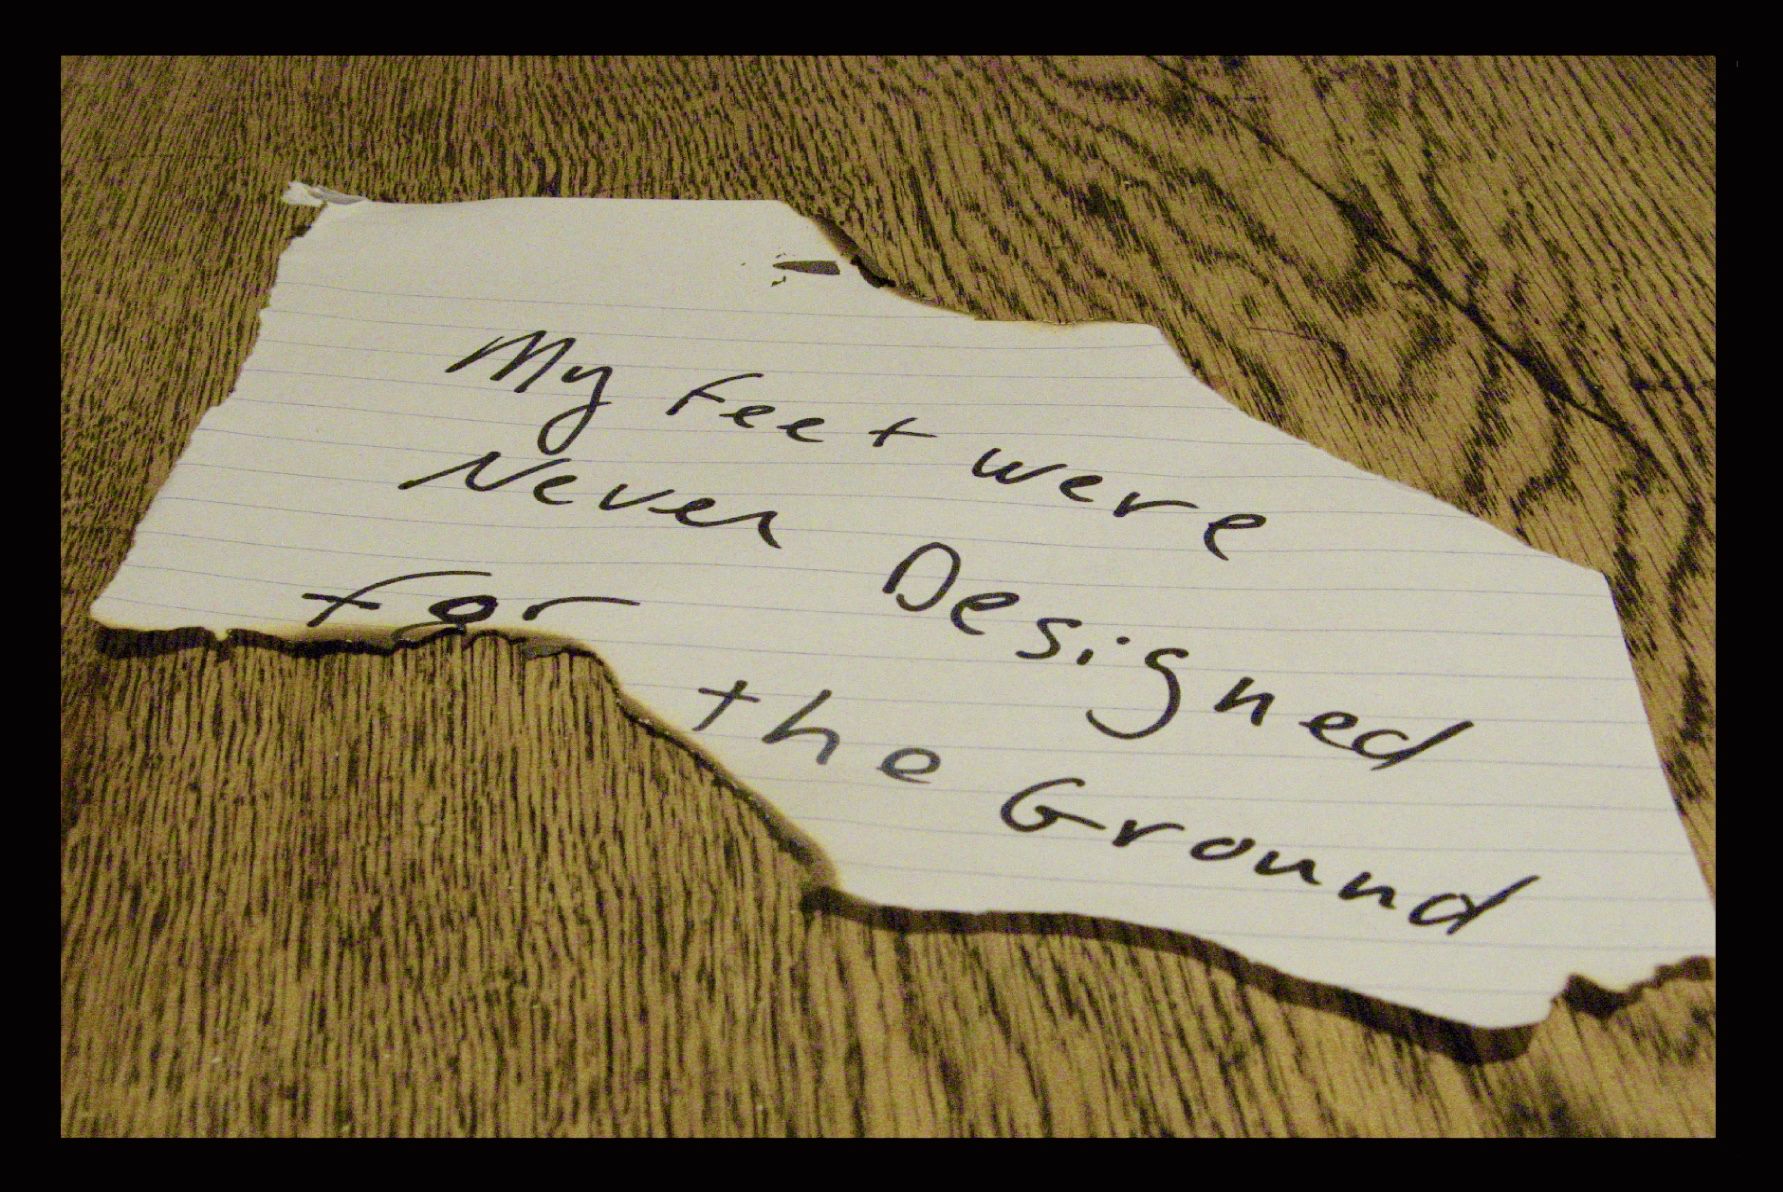 My Feet were
Never Designed
for the Ground